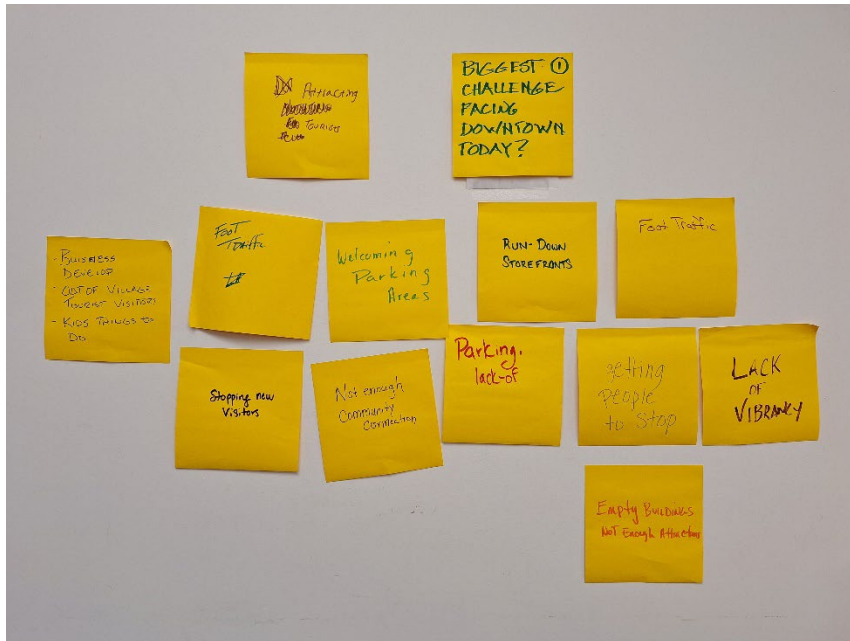 Attracting
Tourists
BIGGEST ①
CHALLENGE
FACING
DOWNTOWN
TODAY?
- BUSINESS
DEVELOP
- OUT OF VILLAGE
TOURIST VISITORS
- KIDS THINGS TO
DO
Foot
Traffic
Welcoming
Parking
Areas
RUN-DOWN
STOREFRONTS
Foot Traffic
Stopping new
Visitors
Not enough
Community
Connection
Parking,
lack-of
getting
People
to Stop
LACK
OF
VIBRANCY
Empty BUILDINGS
NOT Enough Attractions